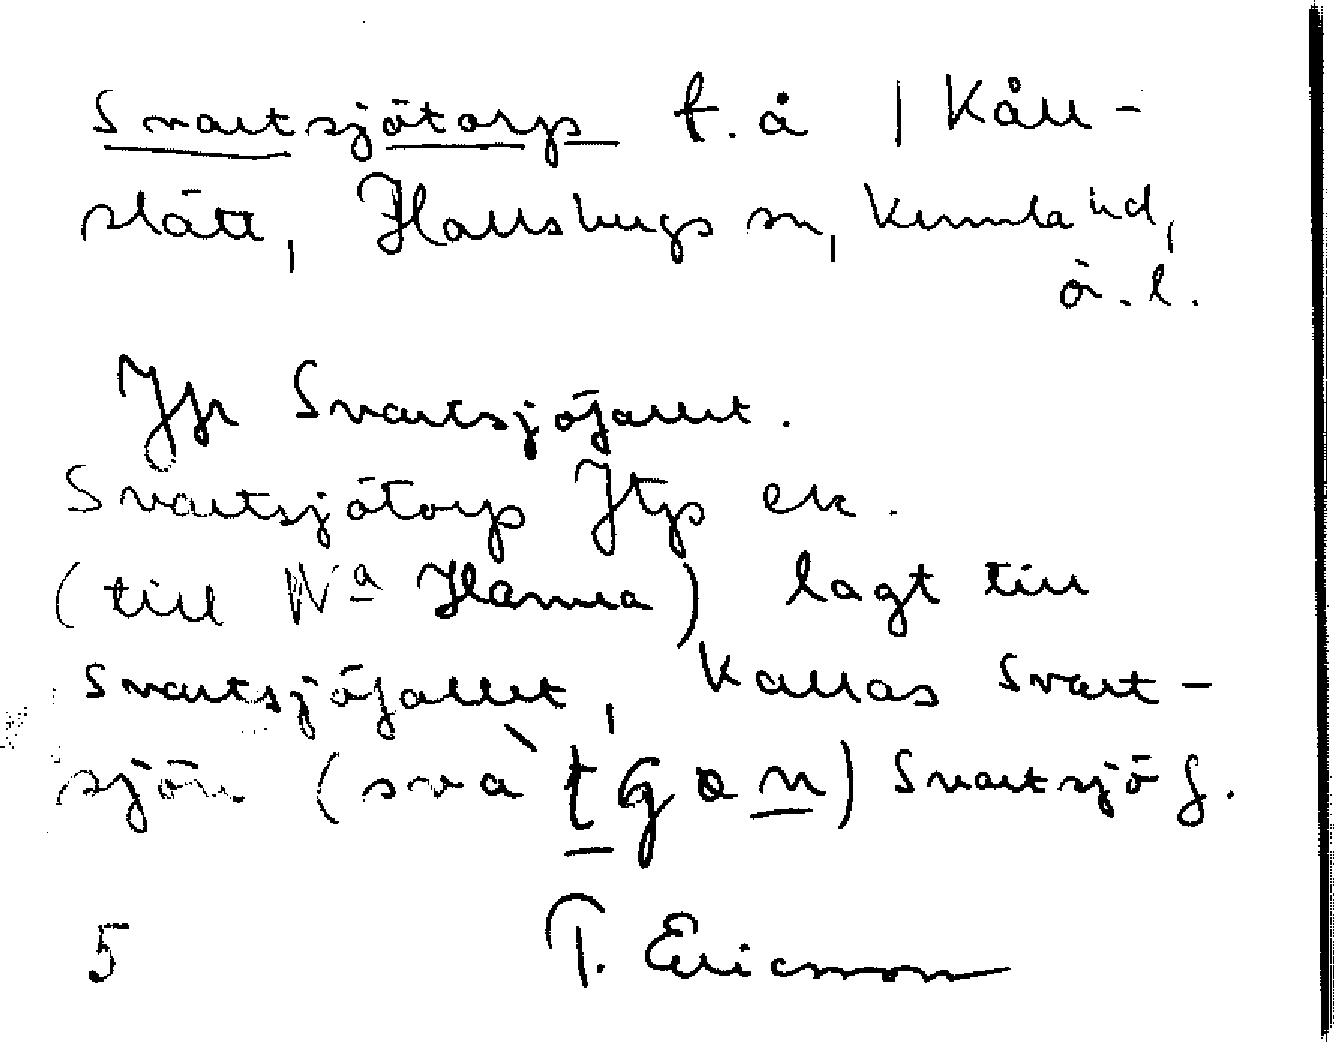 Svartsjötorp t. å | Kåll-
slätt, Hallsbergs sn, Kumla hd,
ö. l.
Jfr Svartsjöfallet.
Svartsjötorp Jtp ek.
(till Na Hamra) lagt till
Svartsjöfallet, kallas Svart-
sjön
Svartsjö f.
5 T. Ericsson